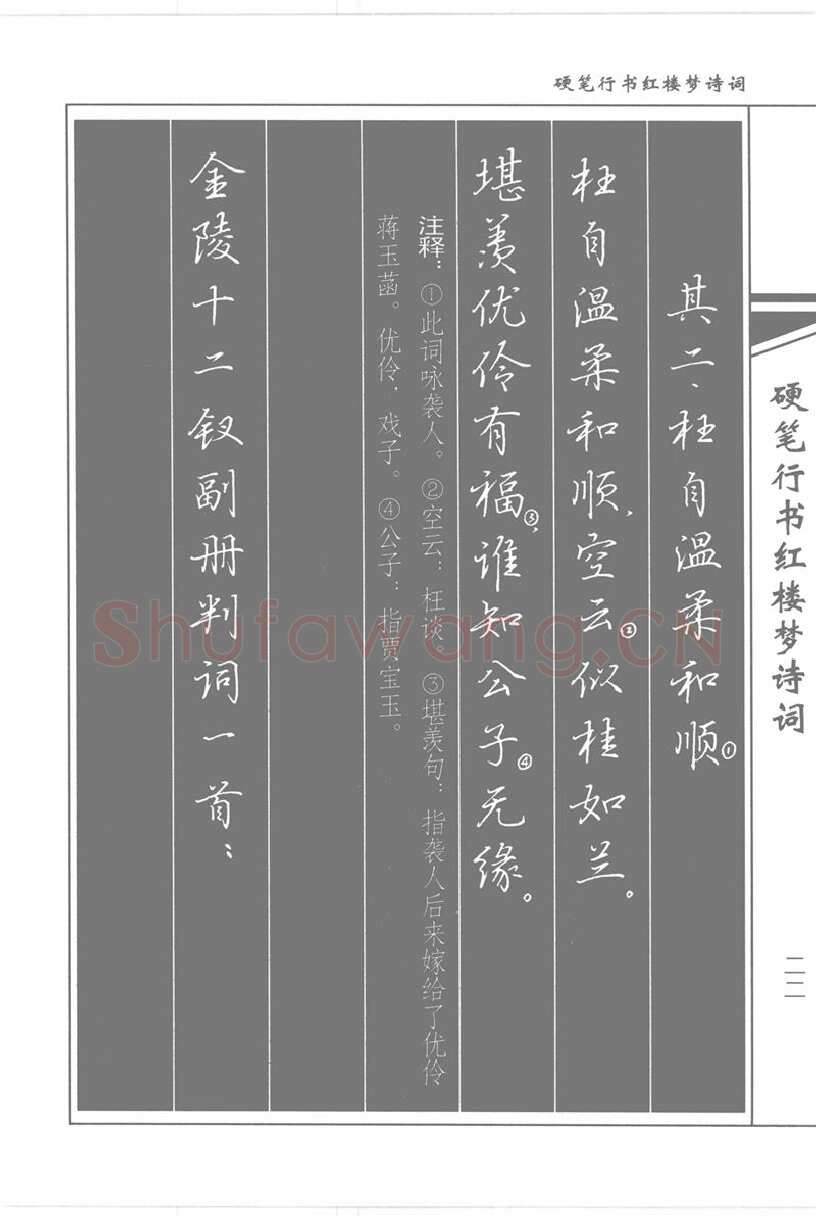 硬笔行书红楼梦诗词
其二、枉自温柔和顺①
枉自温柔和顺，空云②似桂如兰。
堪羡优伶有福③，谁知公子④无缘。
注释：①此词咏袭人。②空云：枉谈。③堪羡句：指袭人后来嫁给了优伶
蒋玉菡。优伶，戏子。④公子：指贾宝玉。
金陵十二钗副册判词一首：
硬笔行书红楼梦诗词
二二
Shufawang.CN